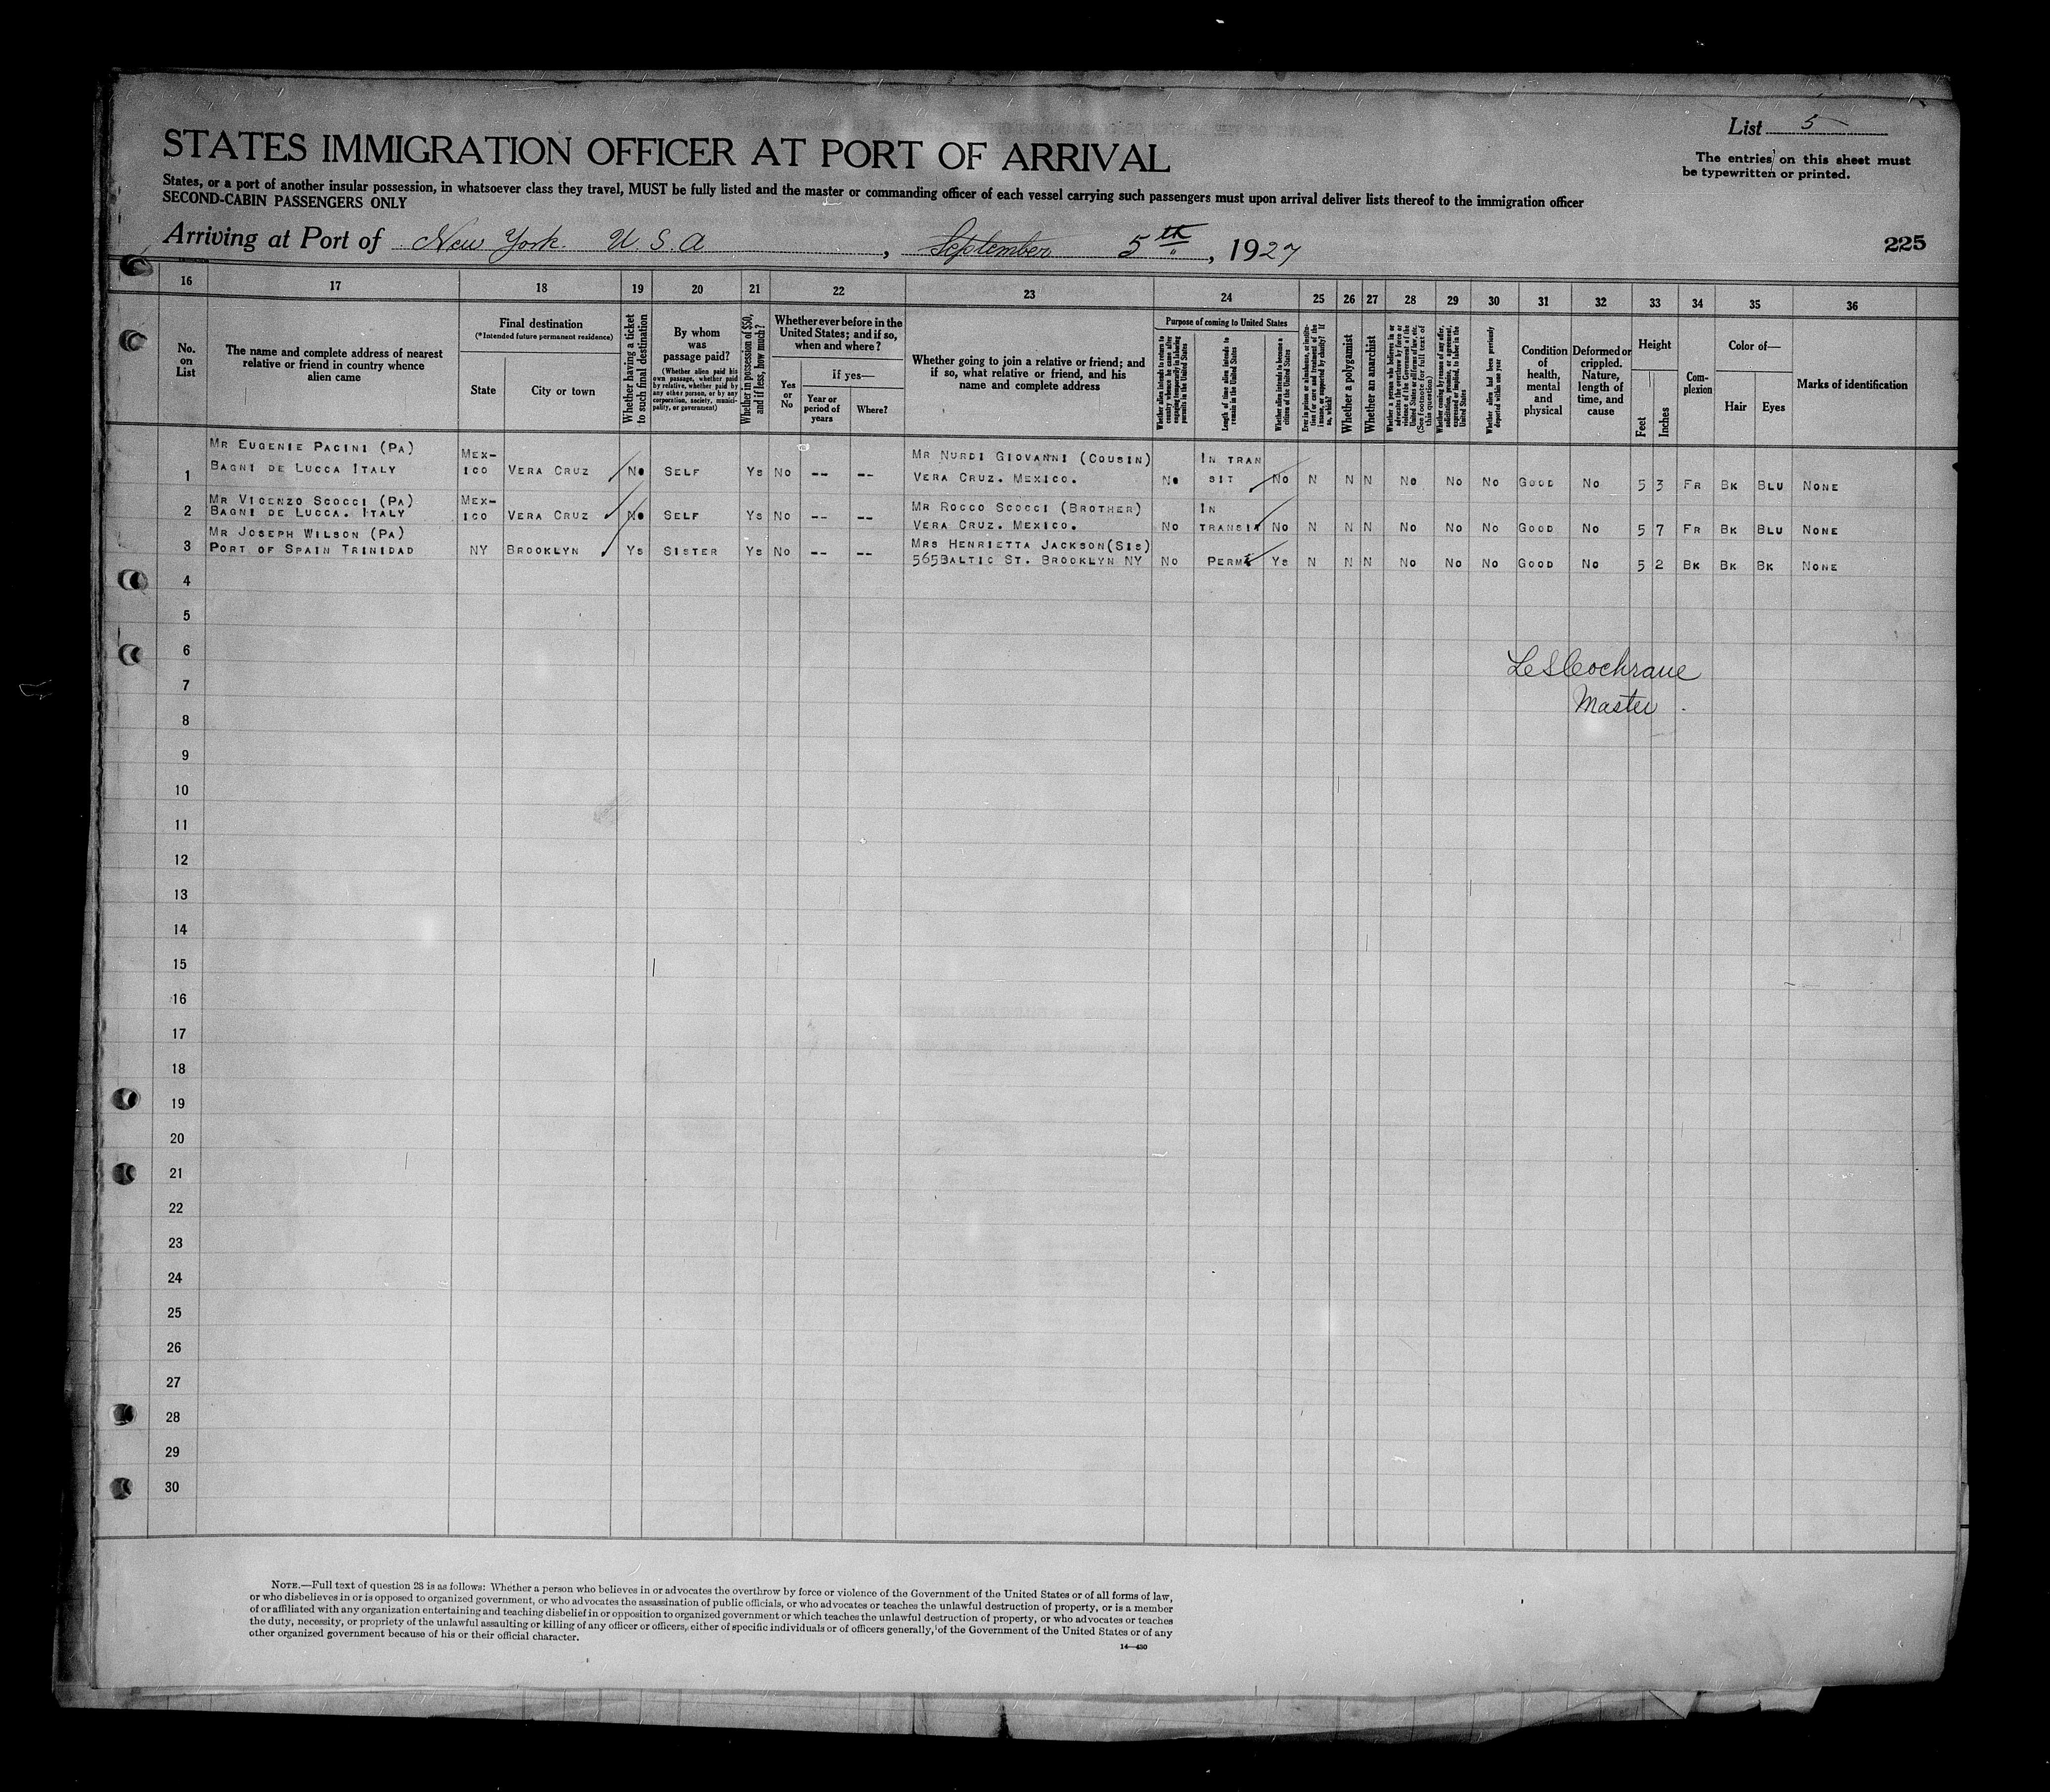 List 5
The entries on this sheet must
be typewritten or printed.
STATES IMMIGRATION OFFICER AT PORT OF ARRIVAL
States, or a port of another insular possession, in whatsoever class they travel, MUST be fully listed and the master or commanding officer of each vessel carrying such passengers must upon arrival deliver lists thereof to the immigration officer
SECOND-CABIN PASSENGERS ONLY
Arriving at Port of New York. U.S.A, September 5th, 1927
225
16 17 18 19 20 21 22 23 24 25 26 27 28 29 30 31 32 33 34 35 36
No.
on
List
The name and complete address of nearest
relative or friend in country whence
alien came
Final destination
(*Intended future permanent residence)
State
City or town
Whether having a ticket
to such final destination
By whom
was
passage paid?
(Whether alien paid his
own passage, whether paid
by relative, whether paid by
any other person, or by any
corporation, society, munici-
pality, or government)
Whether in possession of $50,
and if less, how much?
Whether ever before in the
United States; and if so,
when and where?
Yes
or
No
If yes—
Year or
period of
years
Where?
Whether going to join a relative or friend; and
if so, what relative or friend, and his
name and complete address
Purpose of coming to United States
Whether alien intends to return to
country whence he came after
engaging temporarily in laboring
pursuits in the United States
Length of time alien intends to
remain in the United States
Whether alien intends to become a
citizen of the United States
Ever in prison or almshouse, or institu-
tion for care and treatment of the
insane, or supported by charity? If
so, which?
Whether a polygamist
Whether an anarchist
Whether a person who believes in or
advocates the overthrow by force or
violence of the Government of the
United States or all forms of law, etc.
(See footnote for full text of
this question)
Whether coming by reason of any offer,
solicitation, promise, or agreement,
expressed or implied, to labor in the
United States
Whether alien had been previously
deported within one year
Condition
of
health,
mental
and
physical
Deformed or
crippled.
Nature,
length of
time, and
cause
Height
Feet
Inches
Com-
plexion
Color of—
Hair
Eyes
Marks of identification
MR EUGENIE PACINI (PA) MEX- MR NURDI GIOVANNI (COUSIN) IN TRAN
1 BAGNI DE LUCCA ITALY ICO VERA CRUZ NO SELF YS NO -- -- VERA CRUZ. MEXICO. NO SIT NO N N N NO NO NO GOOD NO 5 3 FR BK BLU NONE
MR VICENZO SCOCCI (PA) MEX- MR ROCCO SCOCCI (BROTHER) IN
2 BAGNI DE LUCCA. ITALY ICO VERA CRUZ NO SELF YS NO -- -- VERA CRUZ. MEXICO. NO TRANSIT NO N N N NO NO NO GOOD NO 5 7 FR BK BLU NONE
MR JOSEPH WILSON (PA) MRS HENRIETTA JACKSON(SIS)
3 PORT OF SPAIN TRINIDAD NY BROOKLYN YS SISTER YS NO -- -- 565BALTIC ST. BROOKLYN NY NO PERMT YS N N N NO NO NO GOOD NO 5 2 BK BK BK NONE
4
5
6
Cochrane
7
Master
8
9
10
11
12
13
14
15
16
17
18
19
20
21
22
23
24
25
26
27
28
29
30
NOTE.—Full text of question 28 is as follows: Whether a person who believes in or advocates the overthrow by force or violence of the Government of the United States or of all forms of law,
or who disbelieves in or is opposed to organized government, or who advocates the assassination of public officials, or who advocates or teaches the unlawful destruction of property, or is a member
of or affiliated with any organization entertaining and teaching disbelief in or opposition to organized government or which teaches the unlawful destruction of property, or who advocates or teaches
the duty, necessity, or propriety of the unlawful assaulting or killing of any officer or officers, either of specific individuals or of officers generally, of the Government of the United States or of any
other organized government because of his or their official character.
14—480